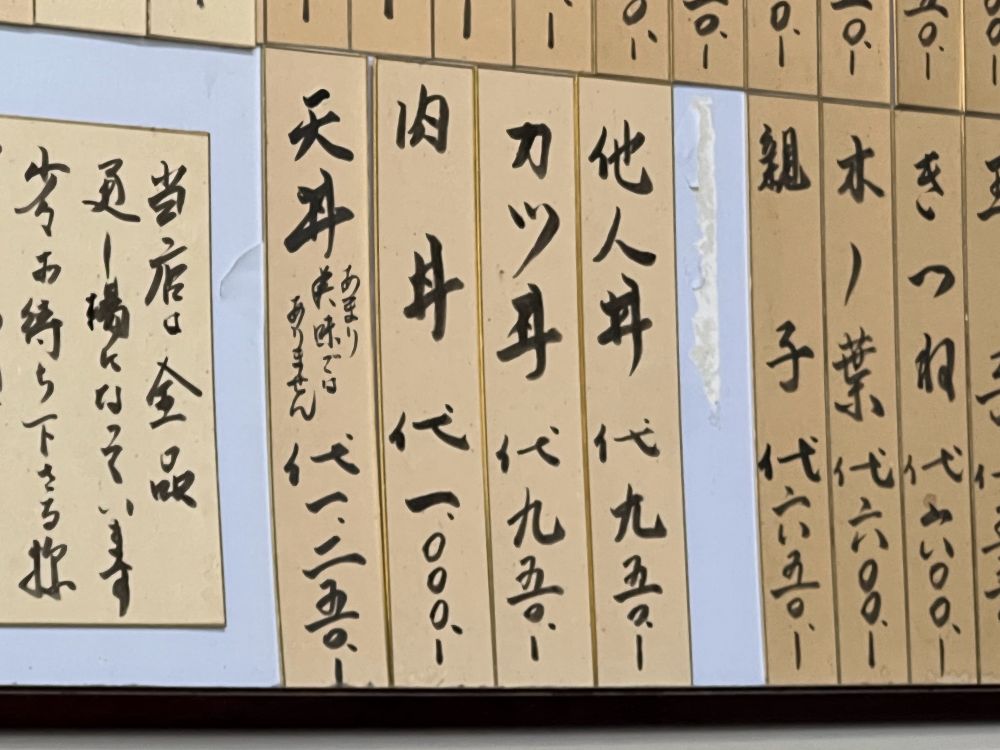 きつね 代六〇〇.ー
木ノ葉 代六〇〇.ー
親子 代六五〇.ー
他人丼 代九五〇.ー
カツ丼 代九五〇.ー
肉丼 代一、〇〇〇.ー
天丼 代一、二五〇.ー
あまり
美味では
ありません
当店は全品
になっています
少々お待ち下さる様